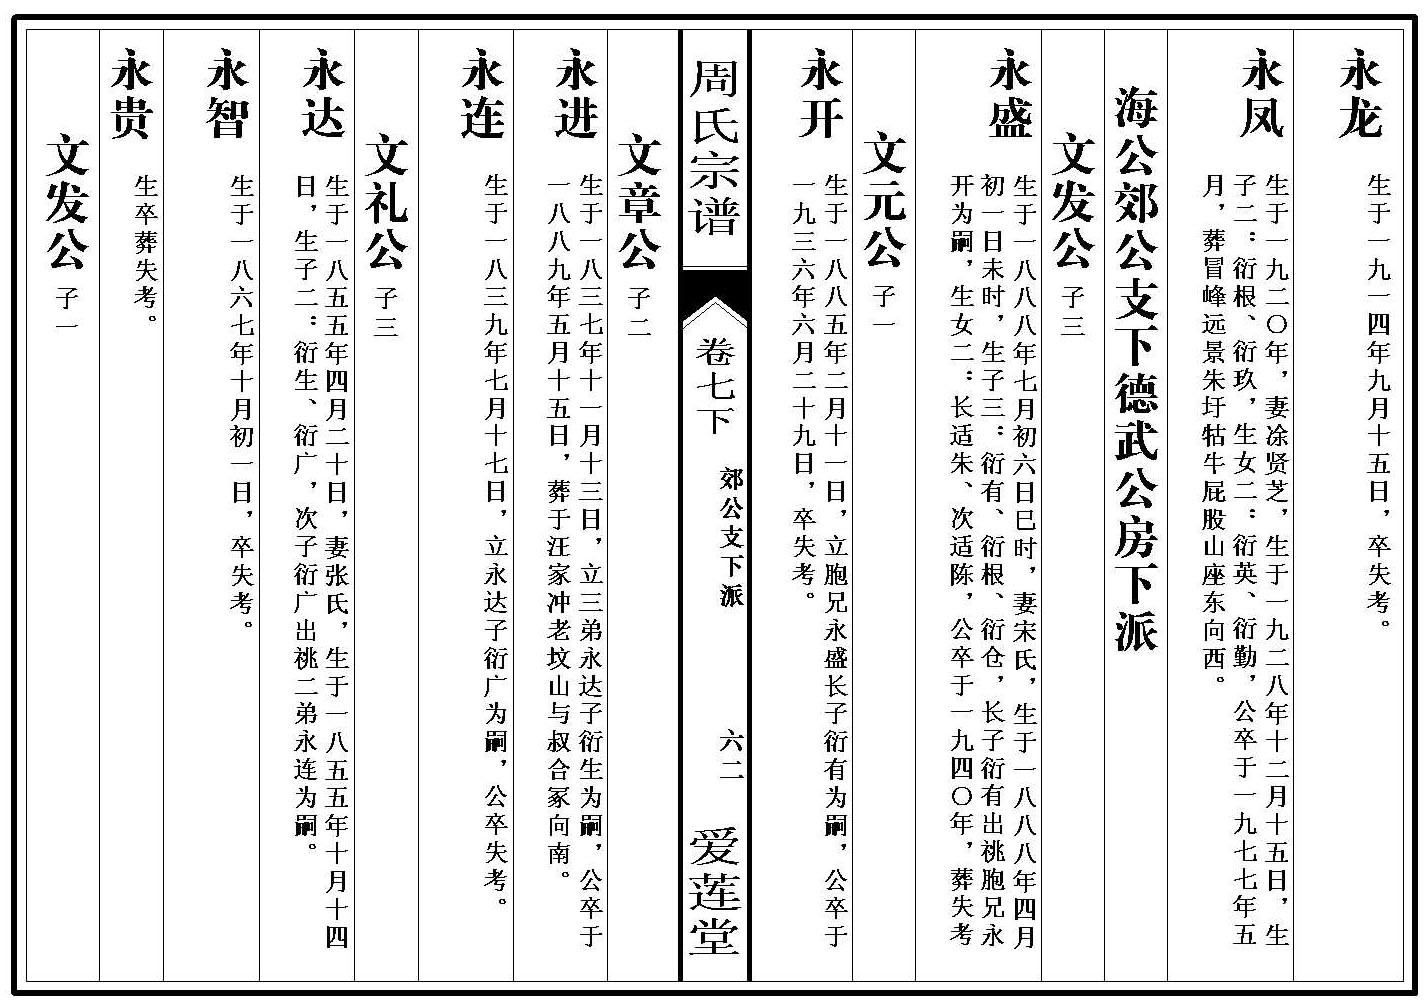 永龙
生于一九一四年九月十五日，卒失考。
永凤
生于一九二〇年，妻凃贤芝，生于一九二八年十二月十五日，生
子二：衍根、衍玖，生女二：衍英、衍勤，公卒于一九七七年五
月，葬冒峰远景朱圩牯牛屁股山座东向西。
海公郊公支下德武公房下派
文发公 子三
永盛
生于一八八八年七月初六日巳时，妻宋氏，生于一八八八年四月
初一日未时，生子三：衍有、衍根、衍仓，长子衍有出祧胞兄永
开为嗣，生女二：长适朱、次适陈，公卒于一九四〇年，葬失考
文元公 子一
永开
生于一八八五年二月十一日，立胞兄永盛长子衍有为嗣，公卒于
一九三六年六月二十九日，卒失考。
周氏宗谱
卷七下
郊公支下派
六二
爱莲堂
文章公 子二
永进
生于一八三七年十一月十三日，立三弟永达子衍生为嗣，公卒于
一八八九年五月十五日，葬于汪家冲老坟山与叔合冢向南。
永连
生于一八三九年七月十七日，立永达子衍广为嗣，公卒失考。
文礼公 子三
永达
生于一八五五年四月二十日，妻张氏，生于一八五五年十月十四
日，生子二：衍生、衍广，次子衍广出祧二弟永连为嗣。
永智
生于一八六七年十月初一日，卒失考。
永贵
生卒葬失考。
文发公 子一